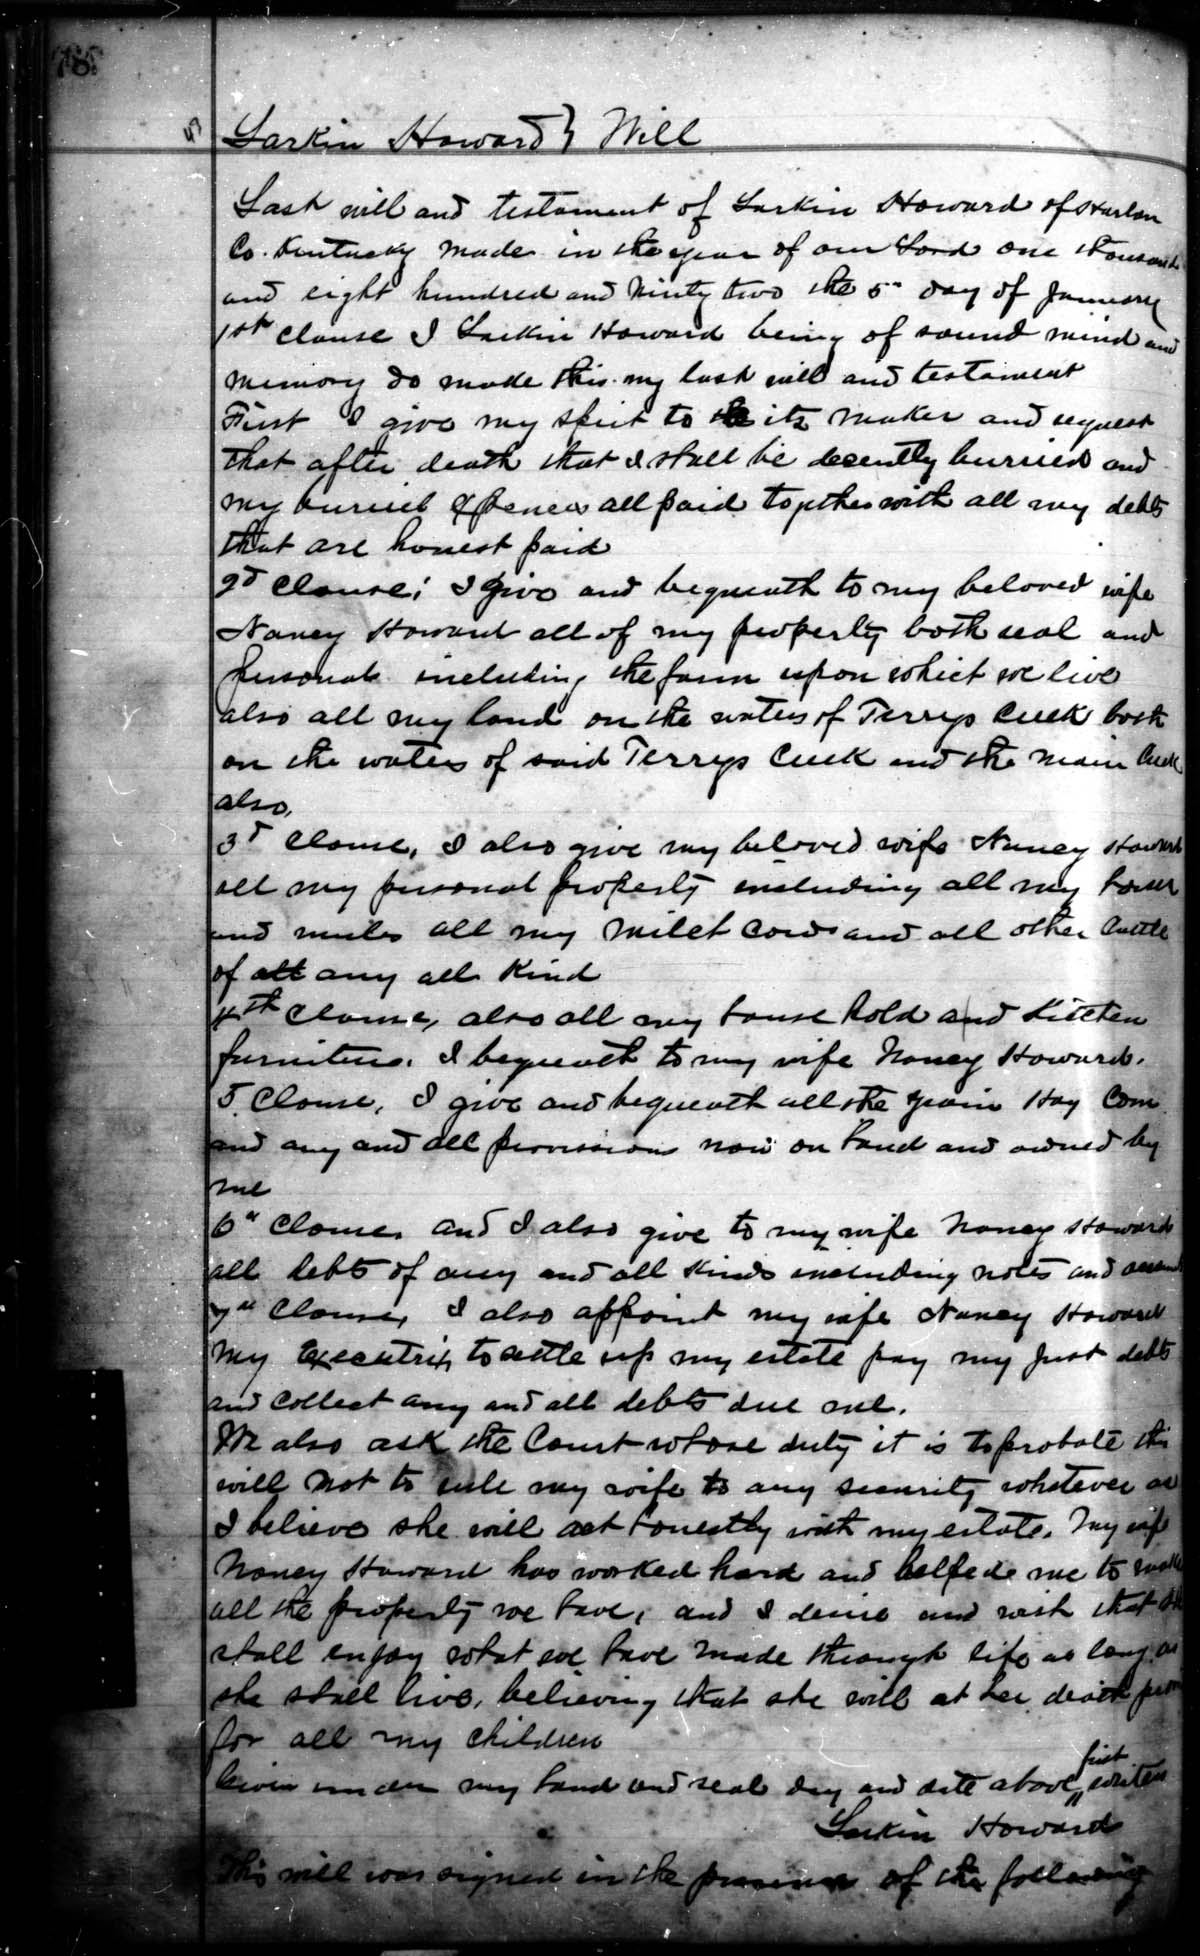 78
Larkin Howard } Will
Last will and testament of Larkin Howard of Harlan
Co. Kentucky made in the year of our Lord one thousand
and eight hundred and Ninty two the 5" day of January
1st Clause I Larkin Howard being of sound mind and
memory do made this my last will and testament
First I give my spirit to its maker and request
that after death that I shall be decently burried and
my buriel expences all paid together with all my debts
that are honest paid
2d Clause; I give and bequeath to my beloved wife
Nancy Howard all of my property both real and
personal including the farm upon which we live
also all my land on the waters of Terrys Creek both
on the waters of said Terrys Creek and the main Creek
also.
3d Clause, I also give my beloved wife Nancy Howard
all my personal property including all my horses
and mules all my milch cows and all other Cattle
of all any all Kind
4th Clause, also all my house hold and Kitchen
furniture. I bequeath to my wife Nancy Howard.
5. Clause, I give and bequeath all the grain Hay Corn
and any and all provisions now on hand and owned by
me
6" Clause. and I also give to my wife Nancy Howard
all debts of any and all Kinds including notes and
7" Clause, I also appoint my wife Nancy Howard
My Executrix to settle up my estate pay my just debts
and collect any and all debts due me.
We also ask the Court whose duty it is to probate this
will not to rule my wife to any security whatever as
I believe she will act honestly with my estate. My wife
Nancy Howard has worked hard and helped me to make
all the property we have, and I desire and wish that she
shall enjoy what we have made through life as long as
she shall live, believing that she will at her death
for all my children
Given under my hand and seal day and date above first written
Larkin Howard
This will was signed in the presence of the following